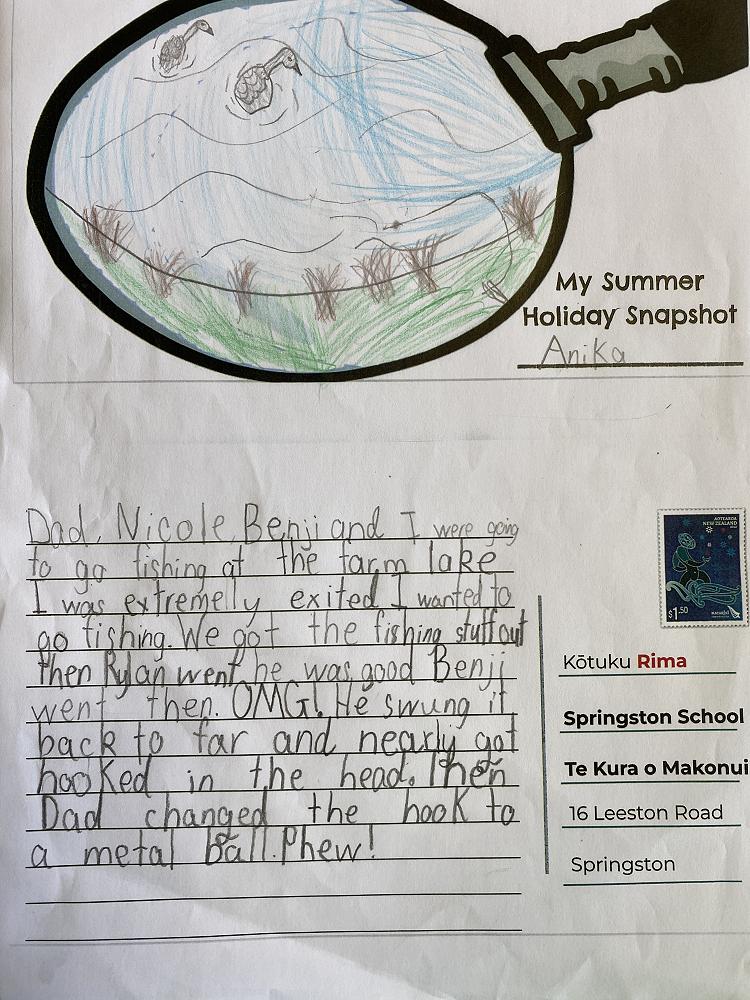 My Summer
Holiday Snapshot
Anika
Dad, Nicole, Benji and I were going
to go fishing at the farm lake
I was extremelly exited I wanted to
go fishing. We got the fishing stuff out
then Rylan went he was good Benji
went then. OMG! He swung it
back to far and nearly got
hooked in the head. Then
Dad changed the hook to
a metal ball. Phew!
AOTEAROA
NEW ZEALAND
$1.50
Kōtuku Rima
Springston School
Te Kura o Makonui
16 Leeston Road
Springston